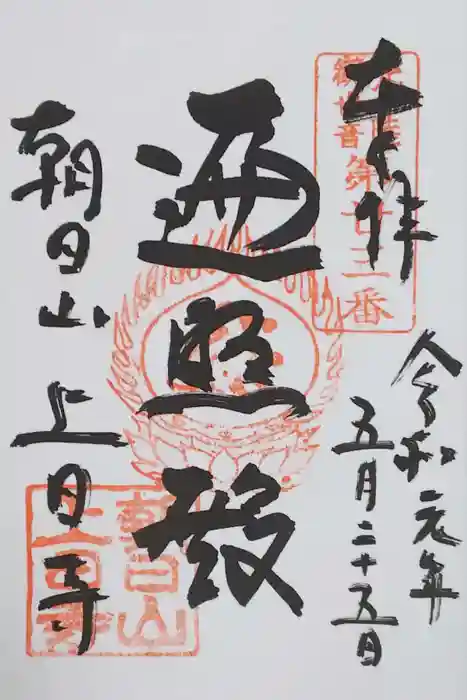 奉拝
第廿三番
令和元年
五月二十五日
遍照殿
朝日山 上日寺
朝日山
上日寺